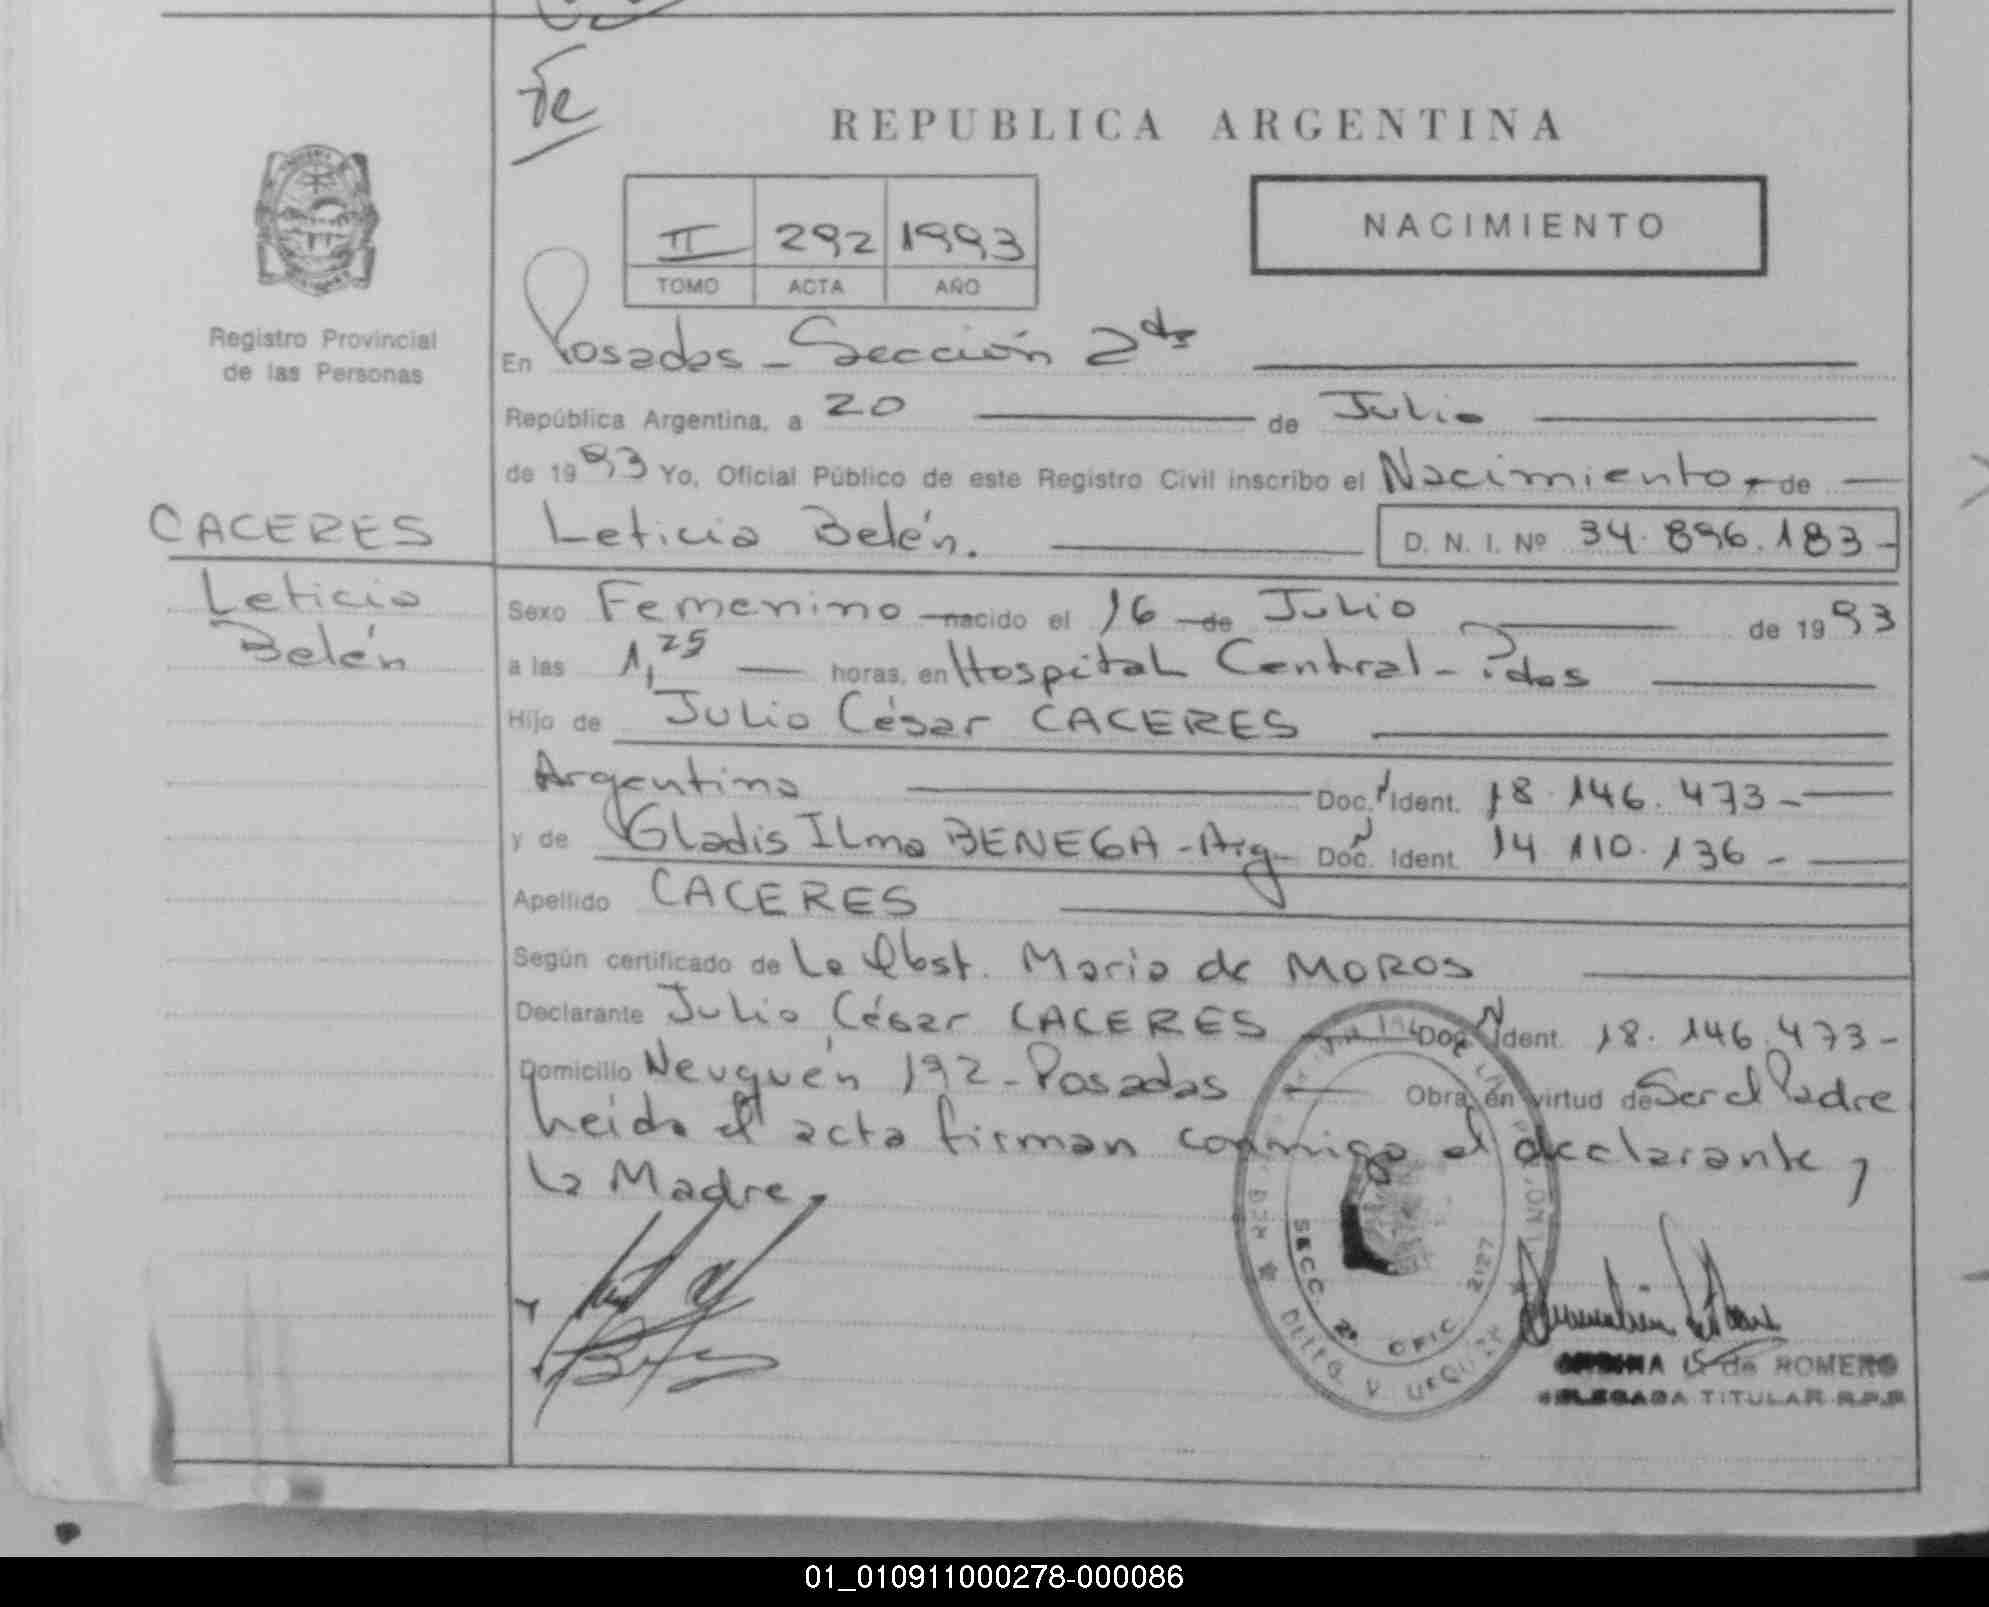 REPUBLICA ARGENTINA
II 292 1993
TOMO ACTA AÑO
NACIMIENTO
Registro Provincial
de las Personas
CACERES
Leticia
Belén
En Posadas - Sección 2da
República Argentina, a 20 de Julio
de 1993 Yo, Oficial Público de este Registro Civil inscribo el Nacimiento de
Leticia Belén. D. N. I. Nº 34.896.183-
Sexo Femenino nacido el 16 de Julio de 1993
a las 1,25 horas, en Hospital Central - Pdas
Hijo de Julio César CACERES
Argentino Doc. Ident. 18.146.473-
y de Gladis Ilma BENEGA - Arg. Doc. Ident. 14.110.136-
Apellido CACERES
Según certificado de La Obst. Maria de MOROS
Declarante Julio César CACERES Doc. Ident. 18.146.473-
Domicilio Neuquén 192 - Posadas Obra en virtud de Ser el Padre
Leida el acta firman conmigo el declarante y
la Madre
SECC. 2ª OFIC. 2127
DELEG. V. URQUIZA
de ROMERO
DELEGADA TITULAR R.P.P
01_010911000278-000086